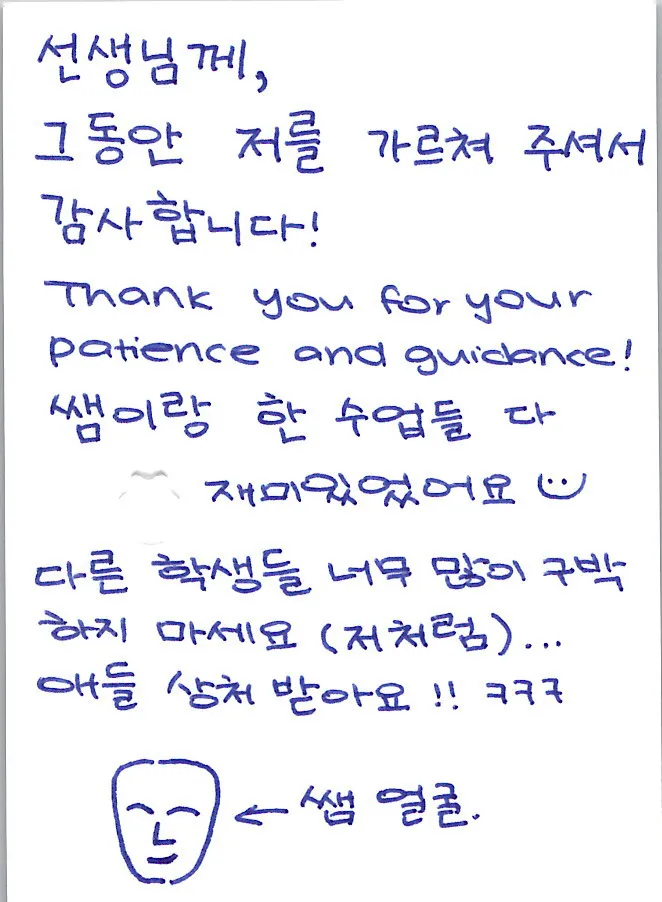 선생님께,
그동안 저를 가르쳐 주셔서
감사합니다!
Thank you for your
patience and guidance!
쌤이랑 한 수업들 다
재미있었어요
다른 학생들 너무 많이 구박
하지 마세요 (저처럼)...
애들 상처 받아요 !! ㅋㅋㅋ
← 쌤 얼굴.